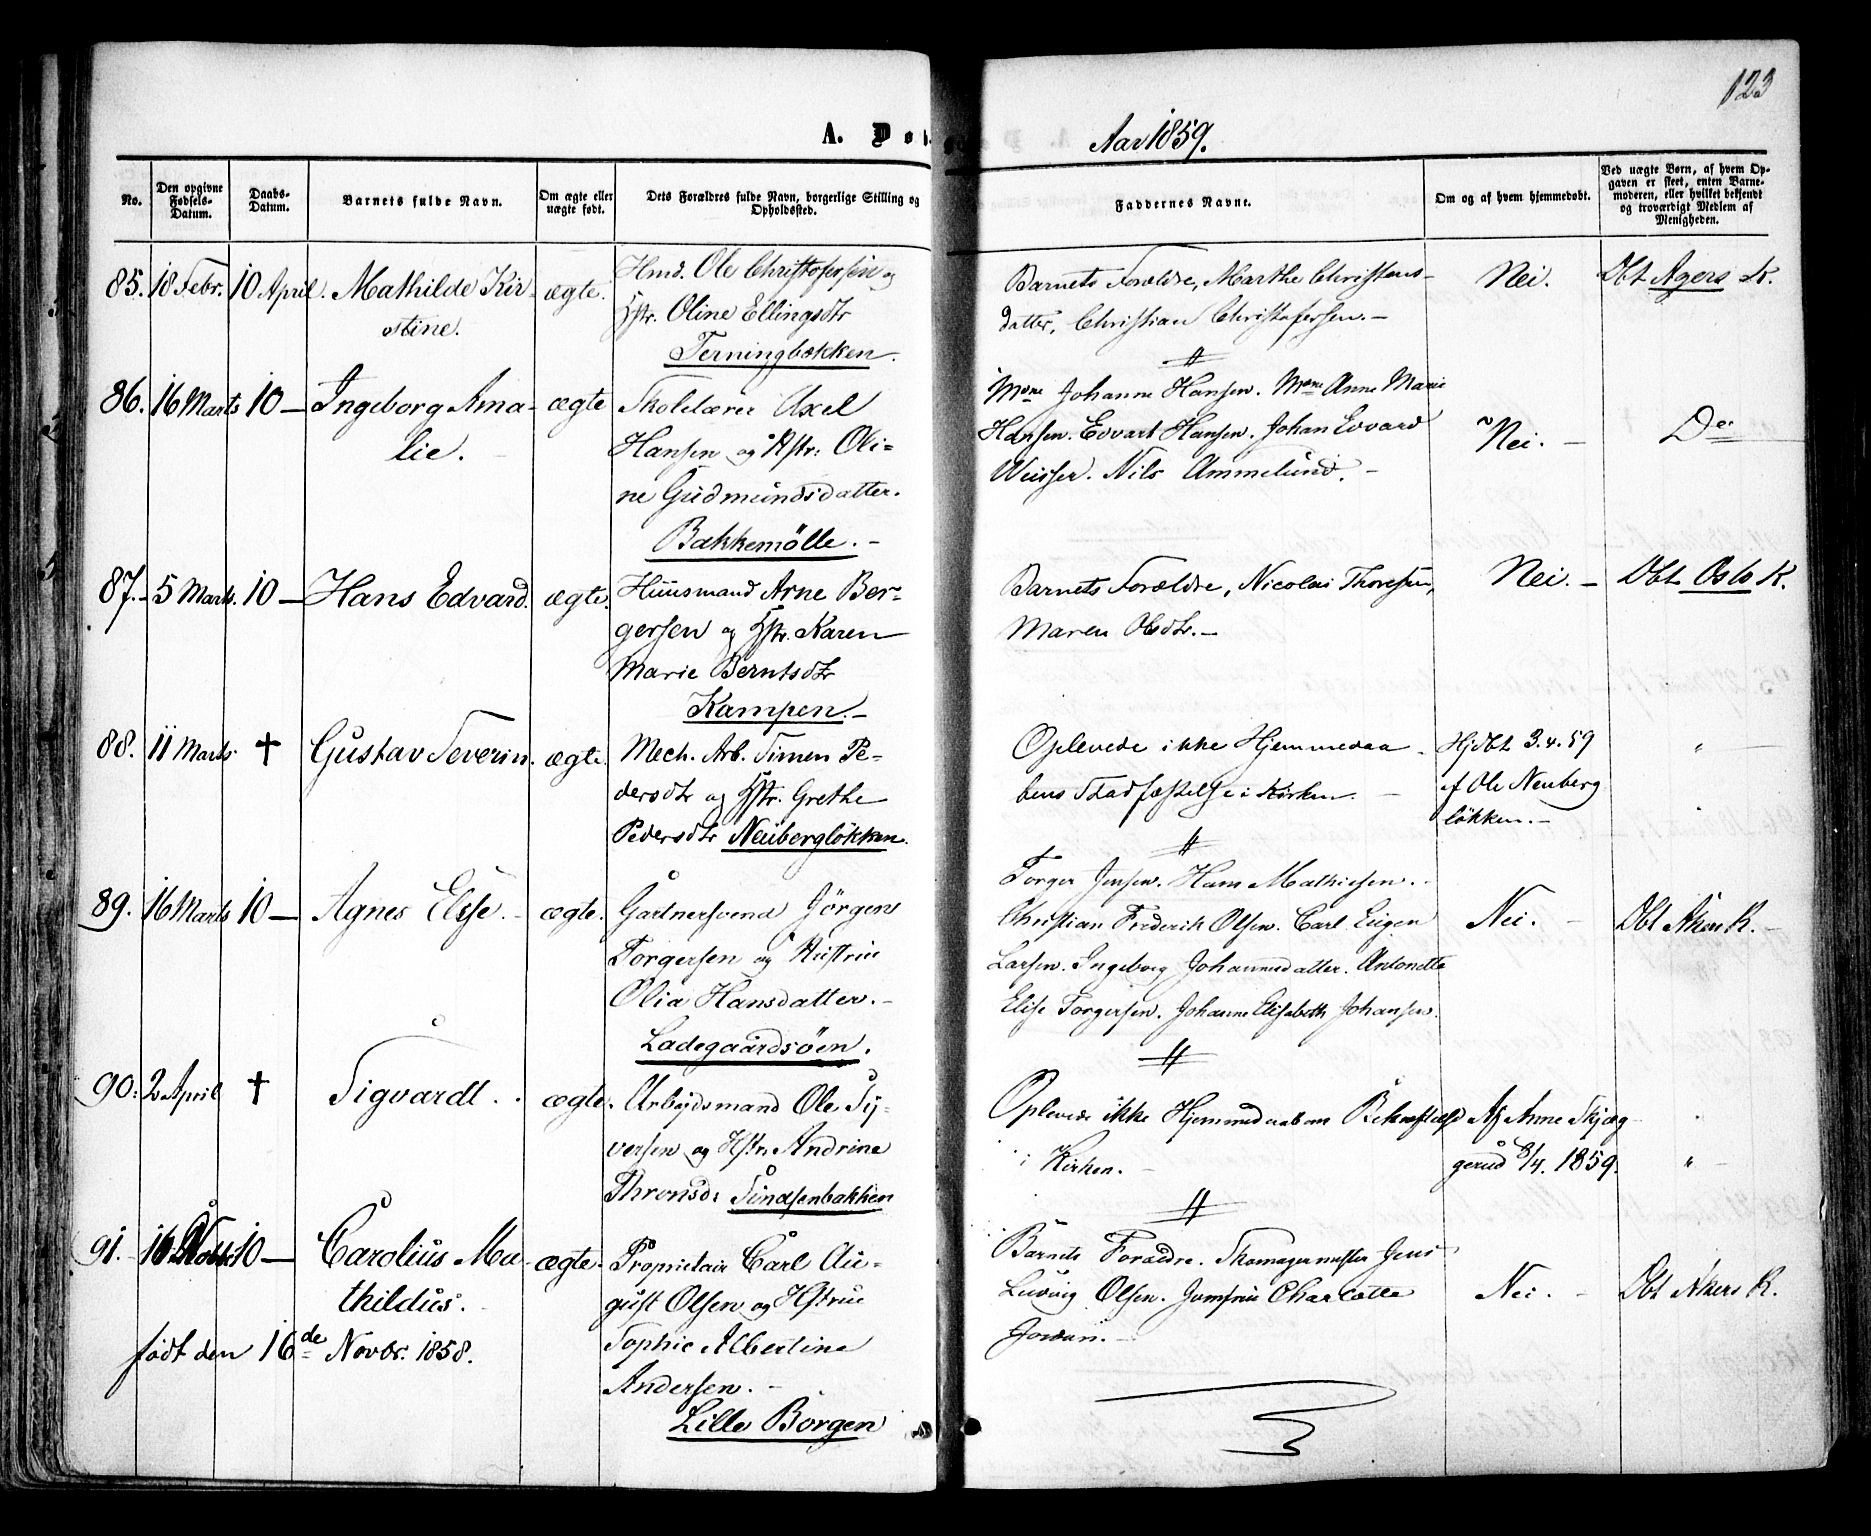 123
A. Døb
Aar 1859.
No.
Den opgivne Fødsels-Datum.
Daabs-Datum.
Barnets fulde Navn.
Om ægte eller uægte født.
Dets Forældres fulde Navn, borgerlige Stilling og Opholdssted.
Faddernes Navne.
Om og af hvem hjemmedøbt.
Ved uægte Børn, af hvem Opgaven er skeet, enten Barnemoderen, eller hvilket bekjendt og troværdigt Medlem af Menigheden.
85. 18 Febr. 10 April. Mathilde Kir-
stine.
ægte.
Hmd. Ole Christofersen og
Hstr. Oline Ellingsdtr
Terningbækken.
Barnets Forældre, Marthe Christens-
datter, Christian Christofersen.
Nei.
Dbt Agers K.
86. 16 Marts 10 — Ingeborg Ama-
lie.
ægte
Skolelærer Axel
Hansen og Hstr: Oli-
ne Gudmundsdatter.
Bakkemölle. -
Mme Johanne Hansen. Mme Anne Marie
Hansen. Edvart Hansen. Johan Edvard
Weisser. Nils Ammelund. -
Nei. -
Do
87. - 5 Marts. 10 — Hans Edvard.
ægte.
Huusmand Arne Ber-
gersen og Hstr. Karen
Marie Berntsdtr
Kampen. -
Barnets Forældre, Nicolai Thoresen,
Maren Olsdtr. -
Nei. -
Dbt Oslo K.
88. 11 Marts † Gustav Severin.
ægte.
Mech. Arb. Simen Pe-
dersdtr og Hstr. Grethe
Pedersdtr Neubergløkken.
Oplevede ikke Hjemmedaa-
bens Stadfæstelse i Kirken. -
Hjdbt 3.4.59
af Ole Neuberg
løkken. -
"
89. 16 Marts 10 — Agnes Elise. -
ægte.
Gartnersvend Jörgen
Torgersen og Hustru
Olia Hansdatter. -
Ladegaardsöen.
Torger Jensen. Hans Mathiesen.
Christian Frederik Olsen. Carl Eugen
Larsen. Ingeborg Johannesdatter. Antonette
Elise Torgersen. Johanne Elisabeth Johansen.
Nei. -
Dbt Akers K. -
90. 2 April † Sigvardt.
ægte.
Arbeidsmand Ole Sy-
versen og Hstr. Andrine
Thronsdr Sindsenbakken
Oplevede ikke Hjemmedaabens Bekræftelse
i Kirken. -
Af Anne Skjæg-
gerud 3/4. 1859.
"
91. - 16 10 — Carolius Ma-
thildus.
født den 16de Novbr. 1858.
ægte.
Proprietair Carl Au-
gust Olsen og Hstrue
Sophie Albertine
Andersen. -
Lille Borgen
Barnets Forældre. Skomagermester Jens
Ludvig Olsen. Jomfrue Charlotte
Jordan. -
Nei. -
Dbt Akers K.